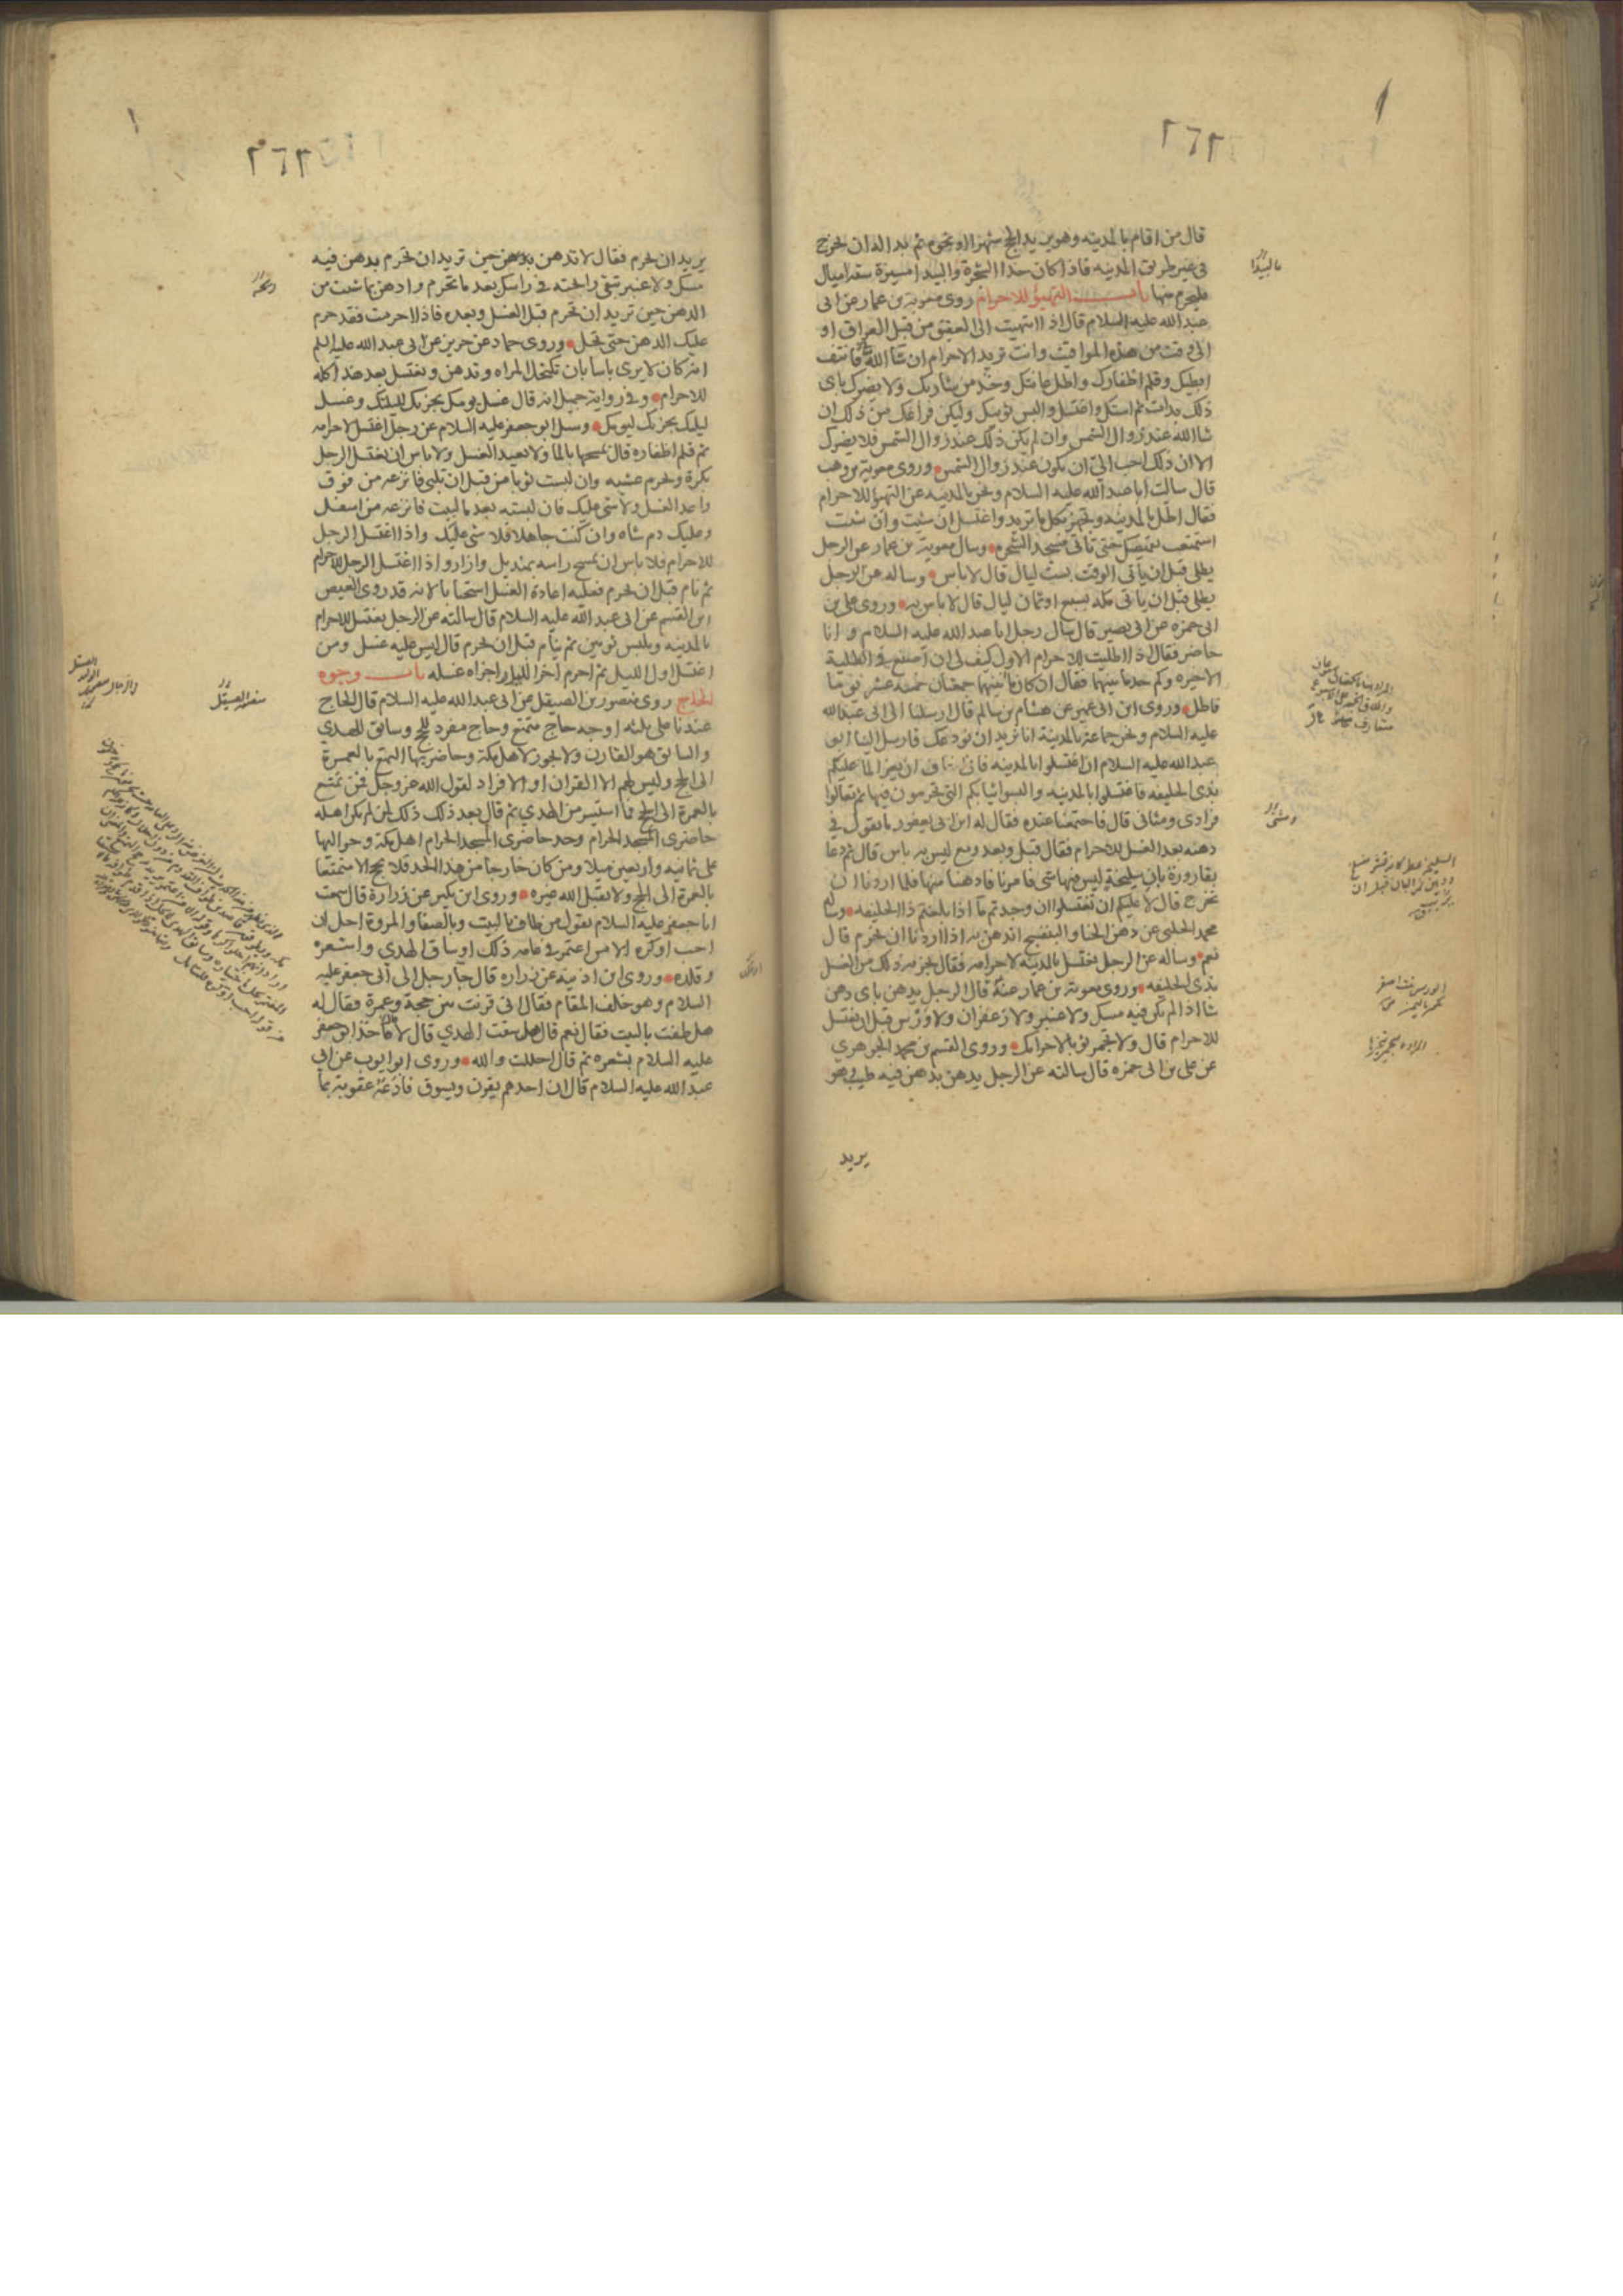 ٢٦٢
قال من اقام بالمدينه وهو يريد الحج شهرا او نحوه ثم بدا له ان يخرج
في غير طريق المدينه فاذا كان حذا الشجرة والبيدا مسيرة ستة اميال
فليحرم منها باب التهيؤ للاحرام روى معوية بن عمار عن ابى
عبد الله عليه السلام قال اذا انتهيت الى العقيق من قبل العراق او
الى وقت من هذه المواقيت وانت تريد الاحرام ان شا الله فانتف
ابطيك وقلم اظفارك واطل عانتك وخذ من شاربك ولا يضرك باى
ذلك بدات ثم استك واغتسل والبس ثوبيك وليكن فراغك من ذلك ان
شا الله عند زوال الشمس وان لم يكن ذلك عند زوال الشمس فلا يضرك
الا ان ذلك احب الىّ ان يكون عند زوال الشمس وروى معوية بن وهب
قال سالت ابا عبد الله عليه السلام ونحن بالمدينه عن التهيؤ للاحرام
فقال اطل بالمدينه وتجهز بكل ما تريد واغتسل ان شئت وان شئت
استمتعت بقميصك حتى تاتى مسجد الشجرة وسال معوية بن عمار عن الرجل
يطلى قبل ان ياتى الوقت بست ليال قال لا باس وساله عن الرجل
يطلى قبل ان ياتى مكه بسبع او ثمان ليال قال لا باس به وروى على بن
ابى حمزه عن ابى بصير قال سال رجل ابا عبد الله عليه السلام وانا
حاضر فقال اذا اطليت للاحرام الاول كيف لى ان اصنع فى الطلية
الاخيره وكم حد ما بينهما فقال ان كان بينهما جمعتان خمسة عشر يوما
فاطل وروى ابن ابى عمير عن هشام بن سالم قال ارسلنا الى ابى عبد الله
عليه السلام ونحن جماعة بالمدينة انا نريد ان نودعك فارسل الينا ابو
عبد الله عليه السلام ان اغتسلوا بالمدينه فانى اخاف ان يعز الما عليكم
بذى الحليفه فاغتسلوا بالمدينه والبسوا ثيابكم التى تحرمون فيها ثم تعالوا
فرادى ومثانى قال فاجتمعنا عنده فقال له ابن ابى يعفور ما تقول فى
دهنه بعد الغسل للاحرام فقال قبل وبعد ومع ليس به باس قال ثم دعا
بقارورة بان سليخة ليس فيها شى فامرنا فادهنا منها فلما اردنا ان
نخرج قال لا عليكم ان تغتسلوا ان وجدتم ما اذا بلغتم ذا الحليفه وسال
محمد الحلبى عن دهن الحنا والبنفسج اندهن به اذا اردنا ان نحرم قال
نعم وساله عن الرجل يغتسل بالمدينه لاحرامه فقال يجزيه ذلك من الغسل
بذى الحليفه وروى معوية بن عمار عنه قال الرجل يدهن باى دهن
شا اذا لم يكن فيه مسك ولا عنبر ولا زعفران ولا ورس قبل ان يغتسل
للاحرام قال ولا تجمر ثوبا لاحرامك وروى القسم بن محمد الجوهري
عن على بن ابى حمزه قال سالته عن الرجل يدهن بدهن فيه طيب وهو
يريد
٢٦٢
يريد ان يحرم فقال لا تدهن بدهن حين تريد ان تحرم بدهن فيه
مسك ولا عنبر تبقى رائحته فى راسك بعد ما تحرم وادهن بما شئت من
الدهن حين تريد ان تحرم قبل الغسل وبعده فاذا احرمت فقد حرم
عليك الدهن حتى تحل وروى حماد عن حريز عن ابى عبد الله عليه السلم
انه كان لا يرى باسا بان تكتحل المراه وتدهن وتغتسل بعد هذا كله
للاحرام وفى رواية جميل انه قال غسل يومك يجزيك لليلتك وغسل
ليلتك يجزيك ليومك وسئل ابو جعفر عليه السلام عن رجل اغتسل لاحرامه
ثم قلم اظفاره قال يمسحها بالما ولا يعيد الغسل ولا باس ان يغتسل الرجل
بكرة ويحرم عشيه وان لبست ثوبا من قبل ان تلبى فانزعه من فوق
واعد الغسل ولا شى عليك فان لبسته بعد ما لبيت فانزعه من اسفل
وعليك دم شاه وان كنت جاهلا فلا شى عليك واذا اغتسل الرجل
للاحرام فلا باس ان يمسح راسه بمنديل وازار واذا اغتسل الرجل للاحرام
ثم نام قبل ان يحرم فعليه اعادة الغسل استحبابا لانه قد روى العيص
ابن القسم عن ابى عبد الله عليه السلام قال سالته عن الرجل يغتسل للاحرام
بالمدينه ويلبس ثوبين ثم ينام قبل ان يحرم قال ليس عليه غسل ومن
اغتسل اول الليل ثم احرم اخر الليل اجزاه غسله باب وجوه
الحاج روى منصور بن الصيقل عن ابى عبد الله عليه السلام قال الحاج
عندنا على ثلثه اوجه حاج متمتع وحاج مفرد للحج وسائق للهدي
والسائق هو القارن ولا يجوز لاهل مكة وحاضريها التمتع بالعمرة
الى الحج وليس لهم الا القران او الافراد لقول الله عز وجل فمن تمتع
بالعمرة الى الحج فما استيسر من الهدي ثم قال بعد ذلك ذلك لمن لم يكن اهله
حاضرى المسجد الحرام وحد حاضرى المسجد الحرام اهل مكة وحواليها
على ثمانيه واربعين ميلا ومن كان خارجا من هذا الحد فلا يحج الا متمتعا
بالعمرة الى الحج ولا يقبل الله غيره وروى ابن بكير عن زرارة قال سمعت
ابا جعفر عليه السلام يقول من طاف بالبيت وبالصفا والمروة احل ان
احب او كره الا من اعتمر فى عامه ذلك او ساق الهدي واشعره
وقلده وروى ابن اذينه عن زراره قال جا رجل الى ابى جعفر عليه
السلام وهو خلف المقام فقال انى قرنت بين حجة وعمرة فقال له
هل طفت بالبيت فقال نعم قال هل سقت الهدي قال لا فاخذ ابو جعفر
عليه السلام بشعره ثم قال احللت والله وروى ابو ايوب عن ابى
عبد الله عليه السلام قال ان احدهم يقرن ويسوق فادعه عقوبة بما